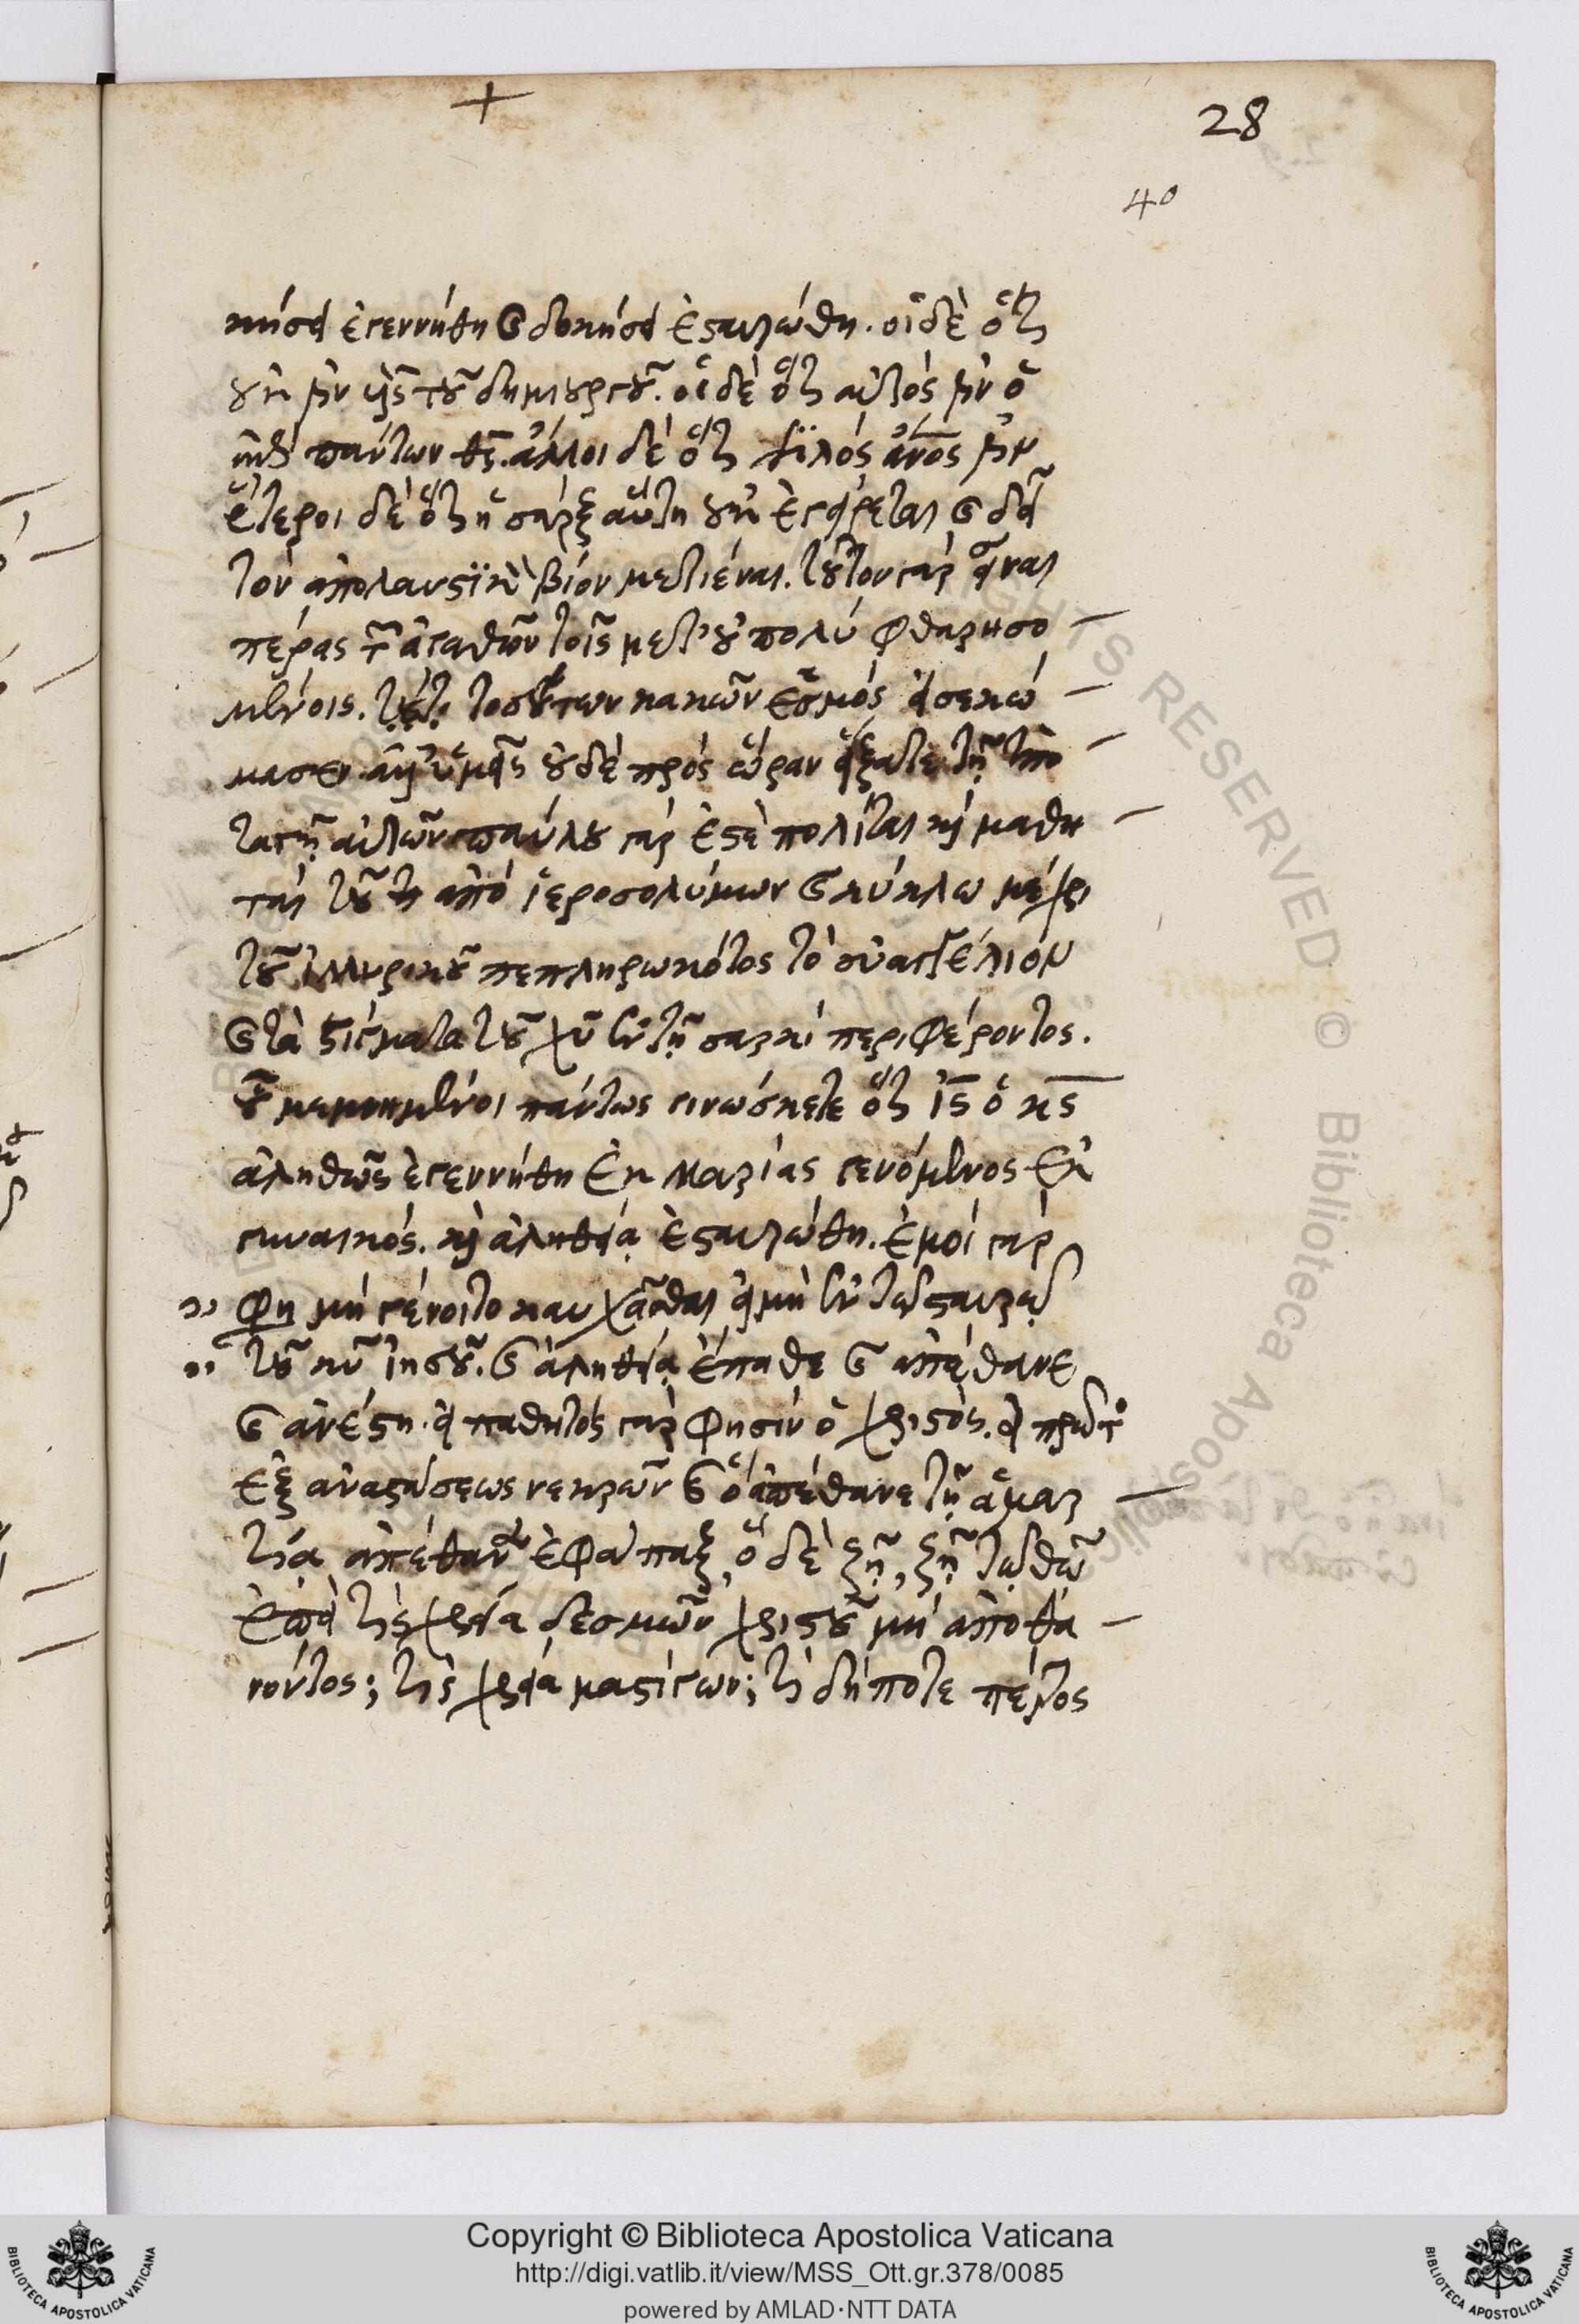 +
28
40
κήσει ἐγεννήθη καὶ δοκήσει ἐσταυρώθη. οἱ δὲ ὅτι
οὐκ ἦν υἱὸς τοῦ δημιουργοῦ. οἱ δὲ ὅτι αὐτός ἦν ὁ
ἐπὶ πάντων θς. ἄλλοι δὲ ὅτι ψιλός ἄνος ἦν
ἕτεροι δὲ ὅτι ἡ σάρξ αὕτη οὐκ ἐγείρεται καὶ δεῖ
τὸν ἀπολαυστικὸν βίον μετιέναι. τοῦτον γὰρ εἶναι
πέρας τῶν ἀγαθῶν τοῖς μετ' οὐ πολὺ φθαρησο
μένοις. τοσούτων κακῶν ἐσμός εἰσεκώ
μασεν. ἀλλ' ὑμεῖς οὐδὲ πρός ὥραν εἴξατε τῇ ὑπο
ταγῇ αὐτῶν παύλου γάρ ἐστὲ πολῖται καὶ μαθη
ταὶ τοῦ ἀπό ἱεροσολύμων καὶ κύκλω μέχρι
τοῦ ἰλλυρικοῦ πεπληρωκότος τὸ εὐαγγέλιον
καὶ τὰ στίγματα τοῦ χυ ἐν τῇ σαρκί περιφέροντος.
οὗ μεμνημένοι πάντως γινώσκετε ὅτι ις ὁ κς
ἀληθῶς ἐγεννήθη ἐκ Μαρίας γενόμενος ἐκ
γυναικός. καὶ ἀληθείᾳ ἐσταυρώθη. ἐμοί γάρ
φη μή γένοιτο καυχᾶσθαι εἰ μὴ ἐν τῷ σταυρῷ
τοῦ κυ ἰησοῦ. καὶ ἀληθείᾳ ἔπαθε καὶ ἀπέθανε
καὶ ἀνέστη. εἰ παθητός γάρ φησίν ὁ χριστός. εἰ πρῶτος
ἐξ ἀναστάσεως νεκρῶν καὶ ὃ ἀπέθανε τῇ ἁμαρ
τίᾳ ἀπέθανεν ἐφάπαξ, ὃ δὲ ζῇ, ζῇ τῷ θῶ
ἐπεὶ τίς χρεία δεσμῶν χριστοῦ μή ἀποθα
νόντος; τίς χρεία μαστίγων; τί δήποτε πέτρος
Copyright © Biblioteca Apostolica Vaticana
http://digi.vatlib.it/view/MSS_Ott.gr.378/0085
powered by AMLAD·NTT DATA